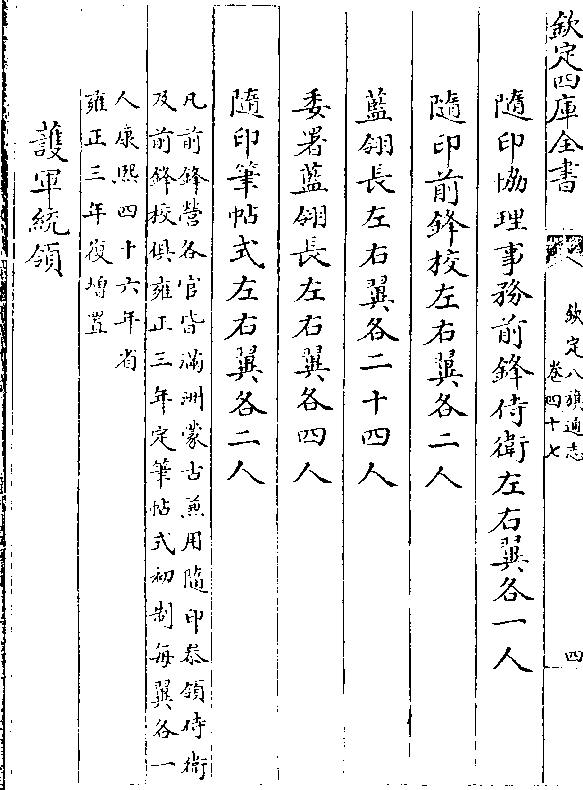 欽定四庫全書
欽定八旗通志
卷四十七
四
隨印協理事務前鋒侍衛左右翼各一人
隨印前鋒校左右翼各二人
藍翎長左右翼各二十四人
委署藍翎長左右翼各四人
隨印筆帖式左右翼各二人
凡前鋒營各官皆滿洲蒙古兼用隨印叅領侍衛
及前鋒校俱雍正三年定筆帖式初制每翼各一
人康熙四十六年省
雍正三年復増置
護軍統領